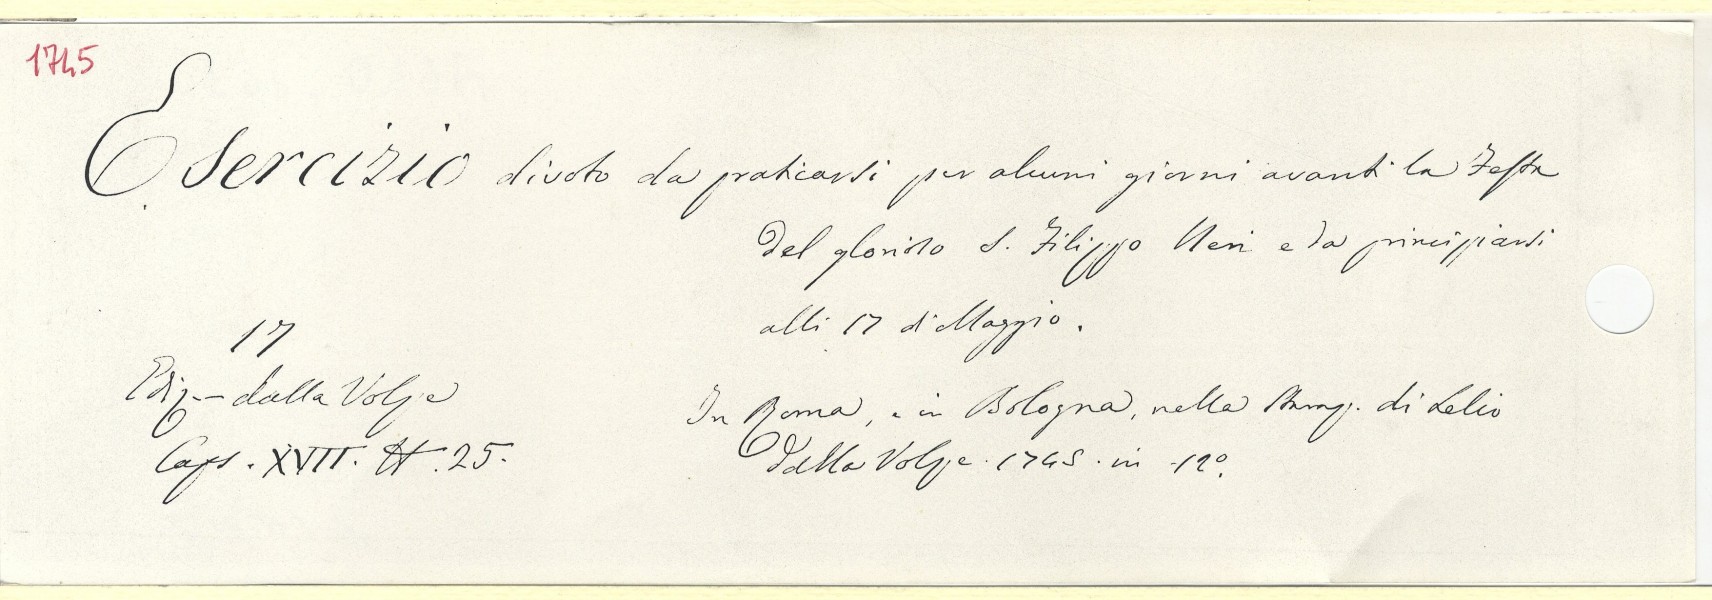 1745
Esercizio divoto da praticarsi per alcuni giorni avanti la Festa
del glorioso S. Filippo Neri e da principiarsi
alli 17 di Maggio.
17
Ediz.- dalla Volpe
Caps. XVII. N. 25.
In Roma, e in Bologna, nella Stamp. di Lelio
dalla Volpe. 1745. in -12°.